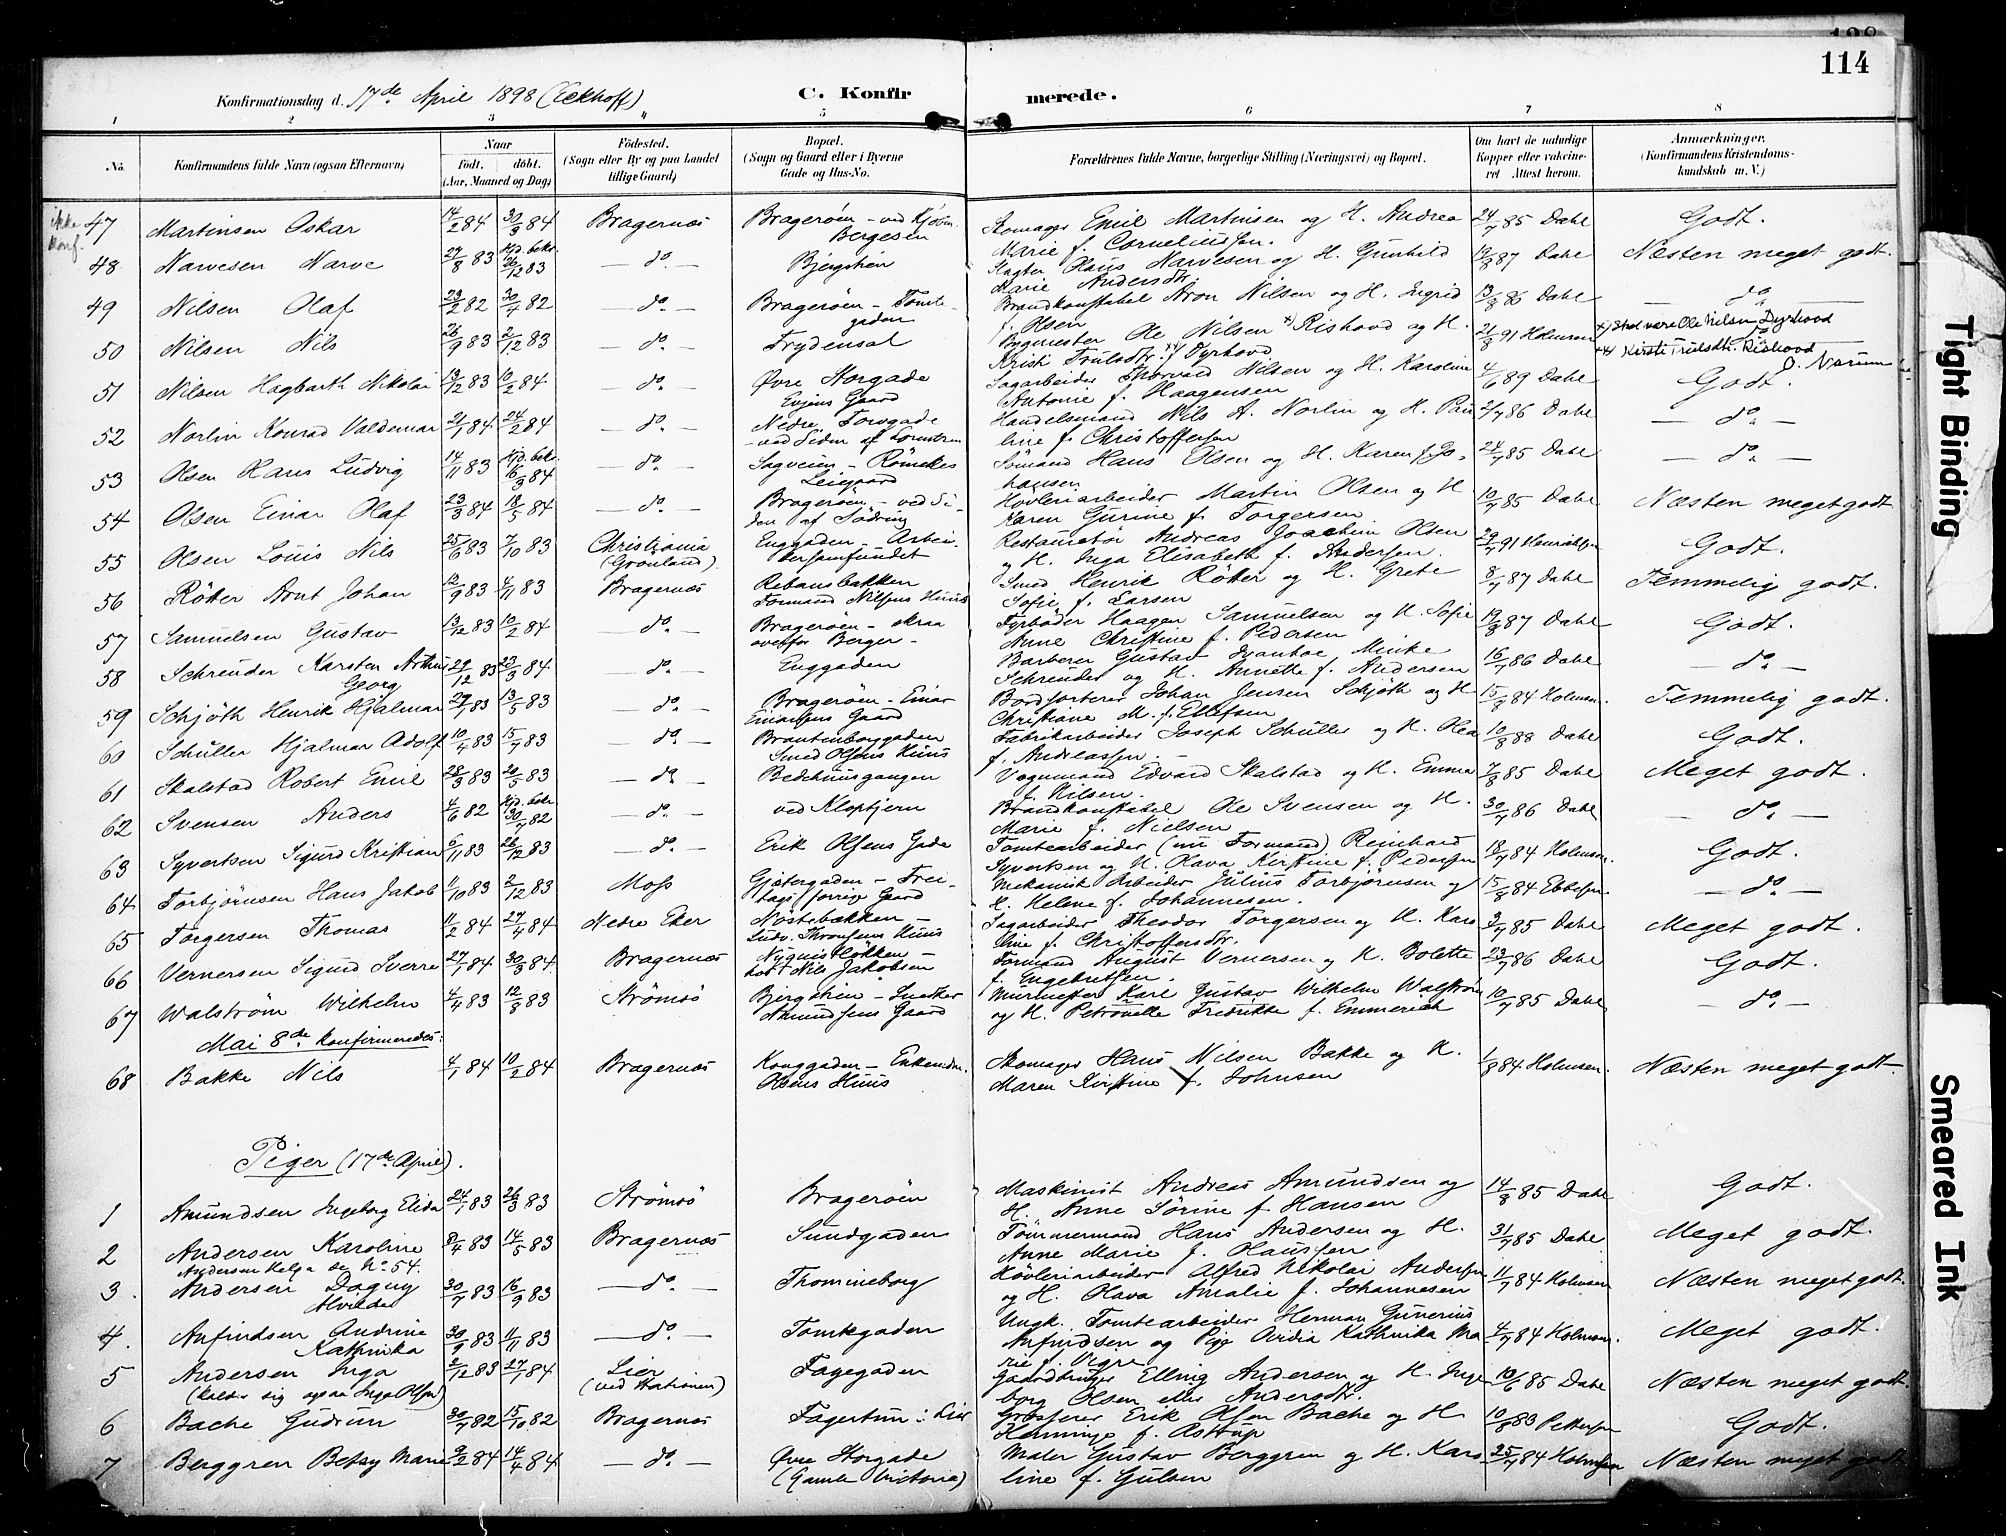 114
Konfirmationsdag d. 17de April 1898 (Eckhoff) C. Konfirmerede.
1 2 3 4 5 6 7 8
No. Konfirmandens fulde Navn (ogsaa Efternavn) Naar født. døbt. (Aar, Maaned og Dag) Fødested. (Sogn eller By og paa Landet tillige Gaard) Bopæl. (Sogn og Gaard eller i Byerne Gade og Hus-No. Forældrenes fulde Navne, borgerlige Stilling (Næringsvei) og Bopæl. Om havt de naturlige Kopper eller vakcineret Attest herom. Anmærkninger. (Konfirmandens Kristendomskundskab m. V.)
ikke konf.
47 Martinsen Oskar 14/2 84 30/3 84 Bragernæs Bragerøen – ved Kjøbm. Bergesen Skomager Emil Martinsen og H. Andrea Marie f. Corneliussen. 24/7 85 Dahl Godt.
48 Narvesen Narve 27/8 83 Hjd. bekr. 26/12 83 – do. – Bjergstien Hans Narvesen og H. Gunhild Marie Andersdtr. 19/8 87 Dahl Næsten meget godt.
49 Nilsen Olaf 23/2 82 30/4 82 – do. – Bragerøen – Tomtegaden Brandkonstabel Aron Nilsen og H. Ingrid f. Olsen 13/8 86 Dahl – do –
50 Nilsen Nils 26/9 83 2/12 83 – do. – Frydensal Bygmester Ole Nilsen x) Rishovd og H. Kristi Trulsdtr. xx) Dyrhovd 21/8 91 Holmsen x) Skal være Ole Nilsen Dyrhovd xx) Kirsti Trulsdtr. Rishovd
51 Nilsen Hagbarth Nikolai 13/12 83 10/2 84 – do. – Øvre Storgade Evjens Gaard Sagarbeider Thorvald Nilsen og H. Karoline Antonie f. Haagensen 4/6 89 Dahl Godt.
52 Norlin Konrad Valdemar 21/1 84 24/2 84 – do. – Nedre Torvgade ved Siden af Handelsmand Nils A. Norlin og H. Pauline f. Christoffersen 2/7 86 Dahl – do. –
53 Olsen Hans Ludvig 14/11 83 Hjd. bekr. 16/3 84 – do. – Sagveien – Römckes Leiegaard Sømand Hans Olsen og H. Karen f. Johansen 24/7 85 Dahl – do. –
54 Olsen Einar Olaf 23/3 84 18/5 84 – do. – Bragerøen – ved Siden af Södring Høvleriarbeider Martin Olsen og H. Karen Gurine f. Torgersen 10/7 85 Dahl Næsten meget godt
55 Olsen Louis Nils 25/6 83 7/10 83 Christiania (Grønland). Enggaden – Arbeidersamfundet Restauratør Andreas Joachim Olsen og H. Inga Elisabeth f. Andersen. 29/7 91 Godt.
56 Røtter Arnt Johan 12/9 83 4/11 83 Bragernæs Rebansbakken Formand Nilsens Huus Smed Henrik Røtter og H. Grete Sofie f. Larsen 8/7 87 Dahl Temmelig godt.
57 Samuelsen Gustav 13/12 83 10/2 84 – do. – Bragerøen – skraa overfor Berger – Fyrbøder Haagen Samuelsen og H. Sofie Anne Christine f. Pedersen 19/8 87 Dahl Godt.
58 Schreuder Karsten Arthur Georg 29/12 83 23/3 84 – do. – Enggaden Barberer Gustav Ivanhoe Minke Schreuder og H. Annette f. Andersen 16/7 86 Dahl – do. –
59 Schjøth Henrik Hjalmar 29/1 83 13/5 83 – do. – Bragerøen – Einar Einarsens Gaard Bordsorterer Johan Jensen Schjøth og H. Christiane M. f. Ellefsen 15/8 84 Holmsen. Temmelig godt.
60 Schuller Hjalmar Adolf 10/4 83 15/7 83 – do. – Brantenborggaden Smed Olsens Huus Fabrikarbeider Joseph Schuller og H. Olea f. Andreassen – 10/8 88 Dahl Godt.
61 Skalstad Robert Emil 28/3 83 20/5 83 – do. – Bedehuusgangen Vognmand Edvard Skalstad og H. Emma f. Nilsen. 7/8 85 Dahl Meget godt.
62 Svensen Anders 4/6 82 Hjd. bekr. 30/7 82 – do. – ved Kloptjern Brandkonstabel Ole Svensen og H. Marie f. Nielsen 30/7 86 Dahl – do. –
63 Syvertsen Sigurd Kristian 6/11 83 26/12 83 – do. – Erik Olsens Gade Tomtearbeider (nu Formand) Reinhard Syvertsen og H. Olava Kirstine f. Pedersen 18/7 84 Holmsen. Godt.
64 Torbjørnsen Hans Jakob 11/10 83 2/12 83 Moss Gjætergaden – Freitags forrige Gaard Mekanisk Arbeider Julius Torbjørnsen og H. Helene f. Johannesen. 15/8 84 Ebbesen. – do. –
65 Torgersen Thomas 11/2 84 27/4 84 Nedre Eker Nøstebækken – Ludv. Thronsens Huus Sagarbeider Theodor Torgersen og H. Karoline f. Christoffersdtr. 3/7 85 Dahl Meget godt.
66 Vernersen Sigurd Sverre 27/1 84 30/3 84 Bragernæs Nyquistløkken – hos Nils Jakobsen Formand August Vernersen og H. Bolette f. Engebretsen. 23/7 86 Dahl Godt.
67 Walstrøm Wilhelm 4/4 83 12/8 83 Strømsø Bjergstien – Snedker Amundsens Gaard Murmester Karl Gustav Wilhelm Walstrøm og H. Petronelle Fredrikke f. Emmerich 10/7 85 Dahl – do. –
Mai 8de konfirmeredes:
68 Bakke Nils 4/1 84 10/2 84 Bragernæs Konggaden – Enkemdm. Olsens Huus Skomager Hans Nilsen Bakke og H. Maren Kirstine f. Johnsen 1/8 84 Holmsen. Næsten meget godt.
Piger (17de April).
1 Amundsen Ingeborg Elida 24/1 83 26/3 83 Strømsø Bragerøen Maskinist Andreas Amundsen og H. Anne Sørine f. Hansen 14/8 85 Dahl Godt.
2 Andersen Karoline 8/4 83 14/5 83 Bragernæs Sundgaden Tømmermand Hans Andersen og H. Anne Marie f. Hanssen 31/7 85 Dahl Meget godt.
Andersen Helga se No 54.
3 Andersen Dagny Alvilde 30/7 83 16/9 83 – do. – Thomineborg Høvleriarbeider Alfred Nikolai Andersen og H. Olava Amalie f. Johannesen 11/7 84 Holmsen Næsten meget godt.
4. Anfindsen Andrine Kathinka 30/9 83 11/11 83 – do. – Tomtegaden Ungk. Tomtearbeider Herman Gunerius Anfindsen og Pige Ovidia Kathinka Marie f. Vegre 4/7 84 Holmsen. Meget godt.
5 Andersen Inga (kalder sig ogsaa Inga Olsen) 2/12 83 27/1 84 Lier (ved Stationen) Fagegaden Gaardbruger Elling Andersen og H. Ingeborg Olsen eller Andersdtr. 10/6 85 Dahl Næsten meget godt.
6 Bache Gudrun 30/7 82 15/10 82 Bragernæs Fagertun i Lier Grosserer Erik Olsen Bache og H. Henninge f. Astrup 10/8 83 Pettersen Godt.
7 Berggren Betsy Marie 9/2 84 14/4 84 – do. – Øvre Storgade (Gamle Victoria) Maler Gustav Berggren og H. Karoline f. Gulsen 25/7 84 Holmsen Næsten meget godt
Tight Binding
Smeared Ink